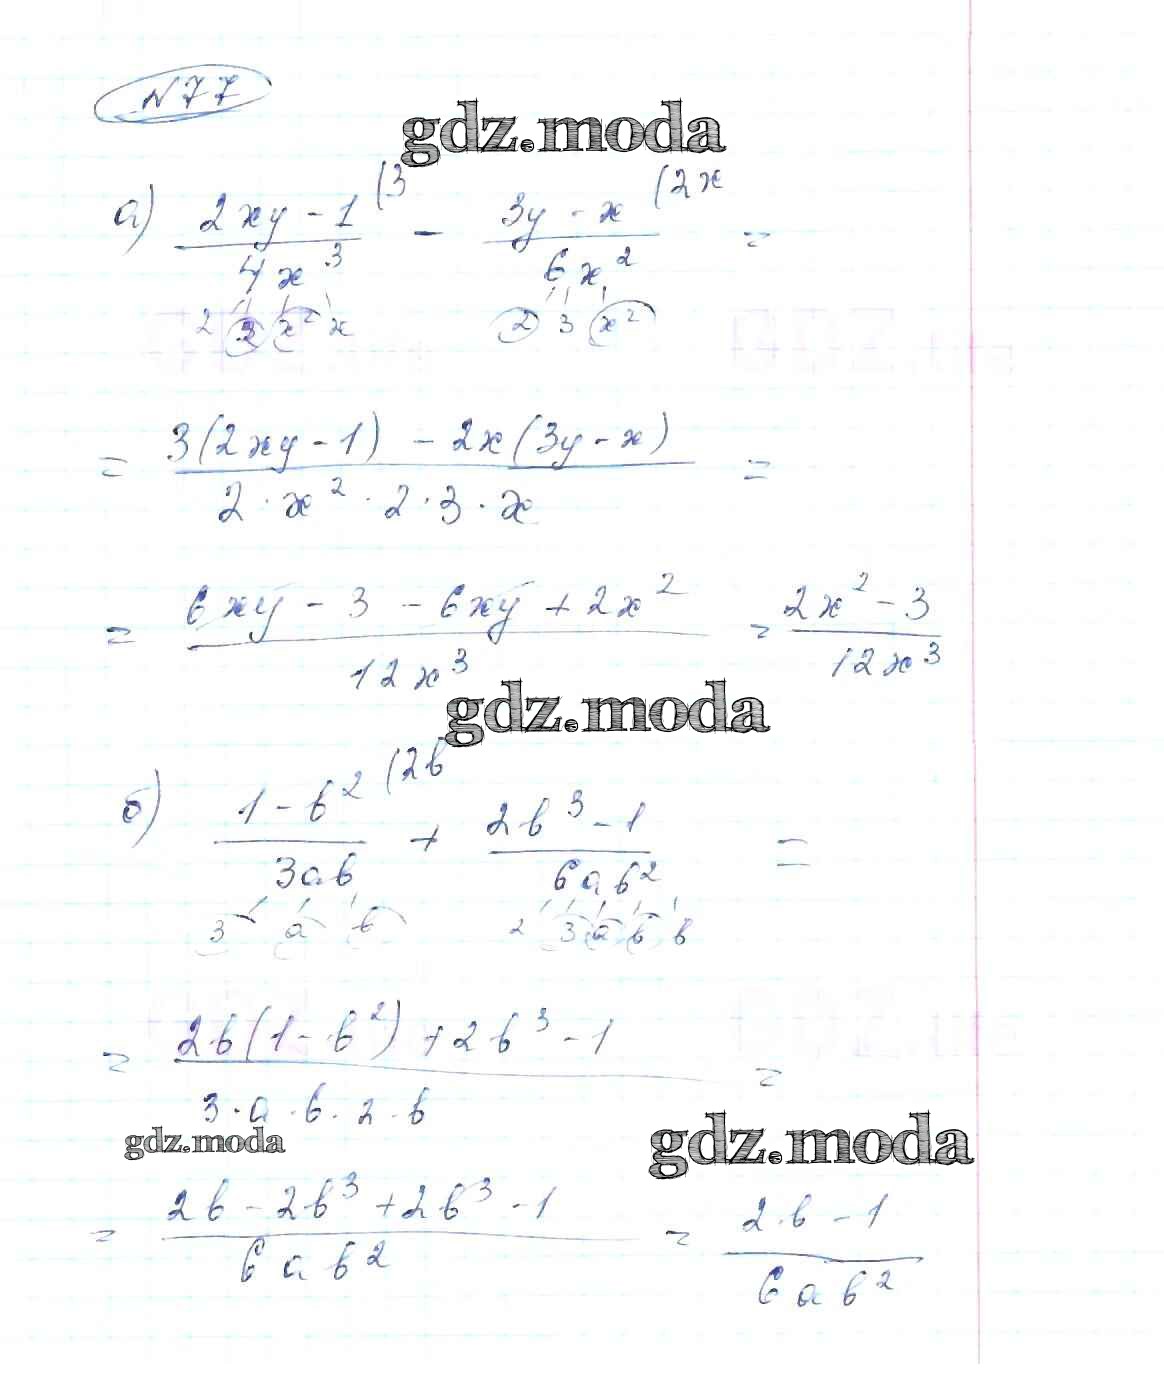 N77
gdz.moda
а) (2xy - 1)/(4x³) (3 - (3y - x)/(6x²) (2x =
2 2 x² x 2 3 x²
= (3(2xy - 1) - 2x(3y - x))/(2 · x² · 2 · 3 · x) =
= (6xy - 3 - 6xy + 2x²)/(12x³) = (2x² - 3)/(12x³)
gdz.moda
б) (1 - b²)/(3ab) (2b + (2b³ - 1)/(6ab²) =
3 a b 2 3 a b b
= (2b(1 - b²) + 2b³ - 1)/(3 · a · b · 2 · b) =
gdz.moda gdz.moda
= (2b - 2b³ + 2b³ - 1)/(6ab²) = (2b - 1)/(6ab²)